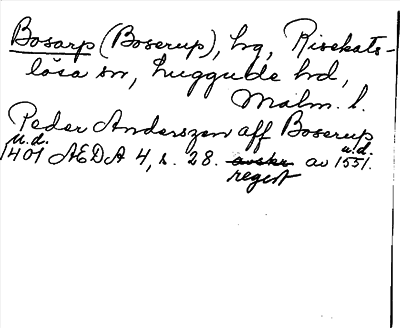 Bosarp (Boserup), hg, Risekats-
lösa sn, Luggude hd,
Malm. l.
Peder Anderszen aff Boserup
u.d. u.d.
1401 AEDA 4, s. 28. avskr av 1551.
regest